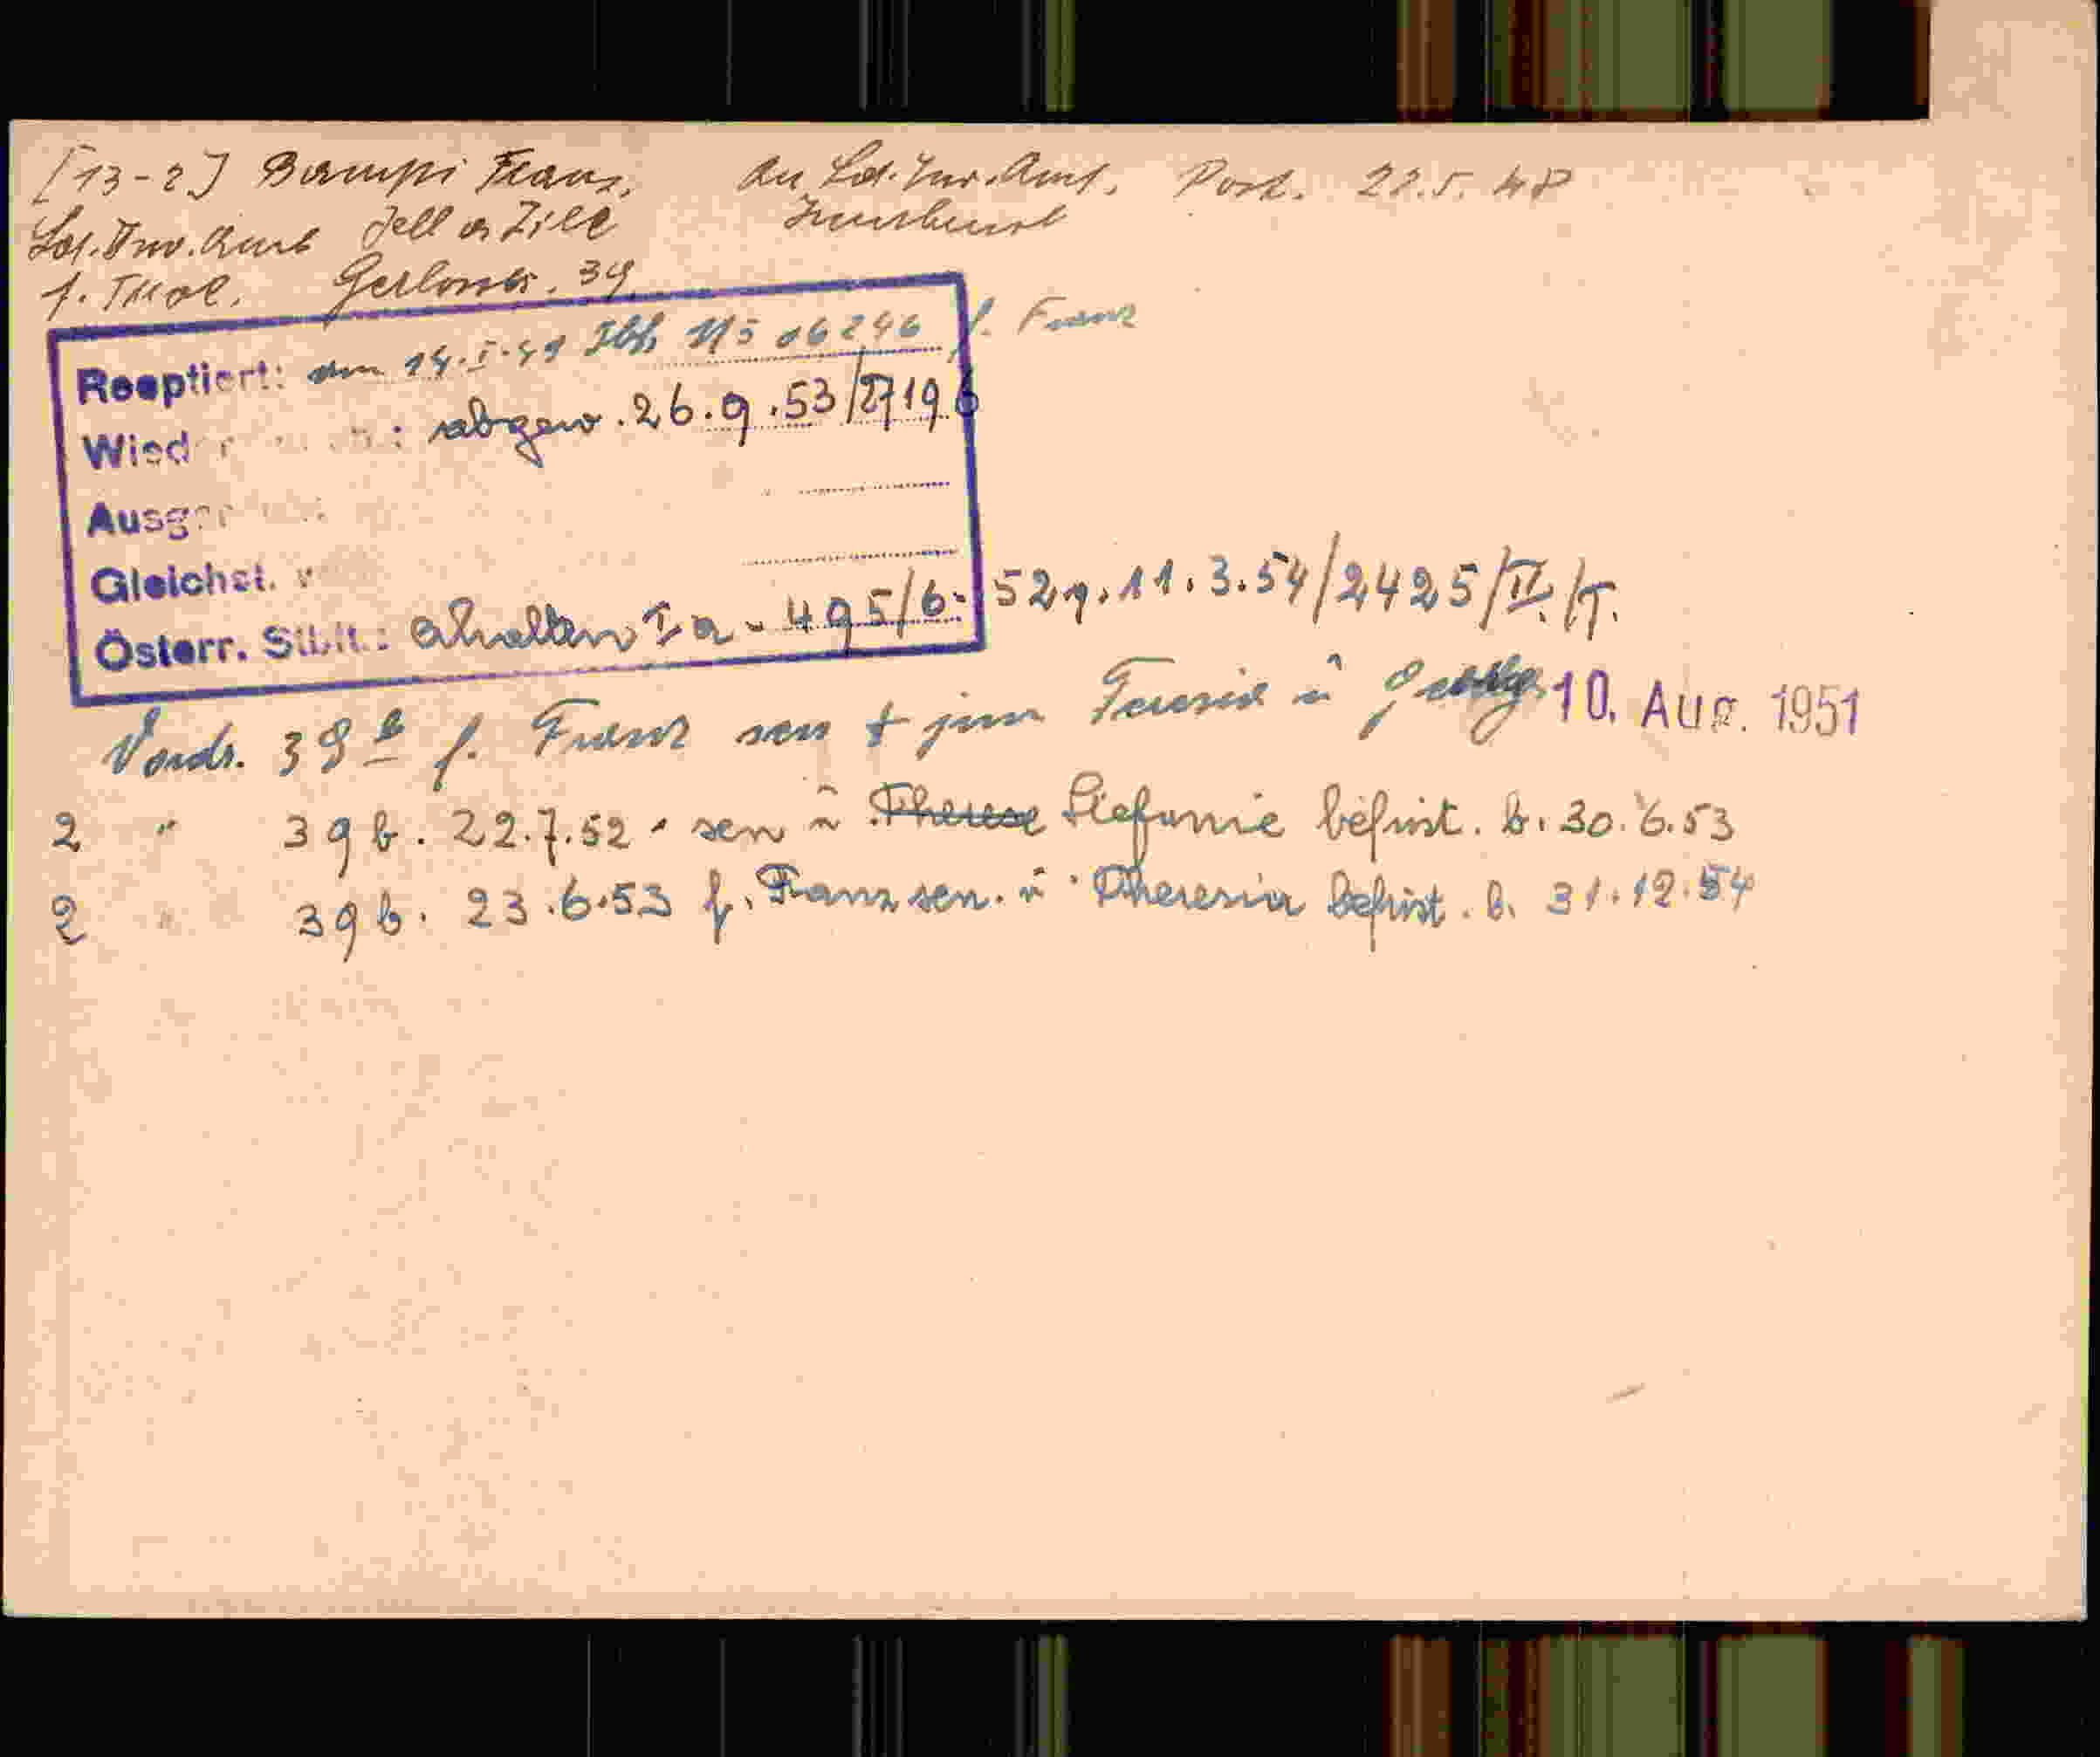 [13-2] Bampi Franz, An Ld. Inv. Amt, Post. 22.5.48
Ld. Inv. Amt Zell a. Ziller Innsbruck
f. Tirol. Gerlosstr. 39
Reoptiert: am 14.I.49 Zbh. 1/5 16246 f. Franz
Wied : abgew. 26.9.53/27196
Ausge
Gleichst.
Österr. Stbit.: erhalten Ia-495/6-52 v. 11.3.54/2425/II./T.
Vordr. 39b f. Franz sen + jun Teresia u 10. Aug. 1951
2 " 39b. 22.7.52 - sen u Therese Stefanie befrist. b. 30.6.53
2 " 39b. 23.6.53 f. Franz sen. u. Theresia befrist. b. 31.12.54